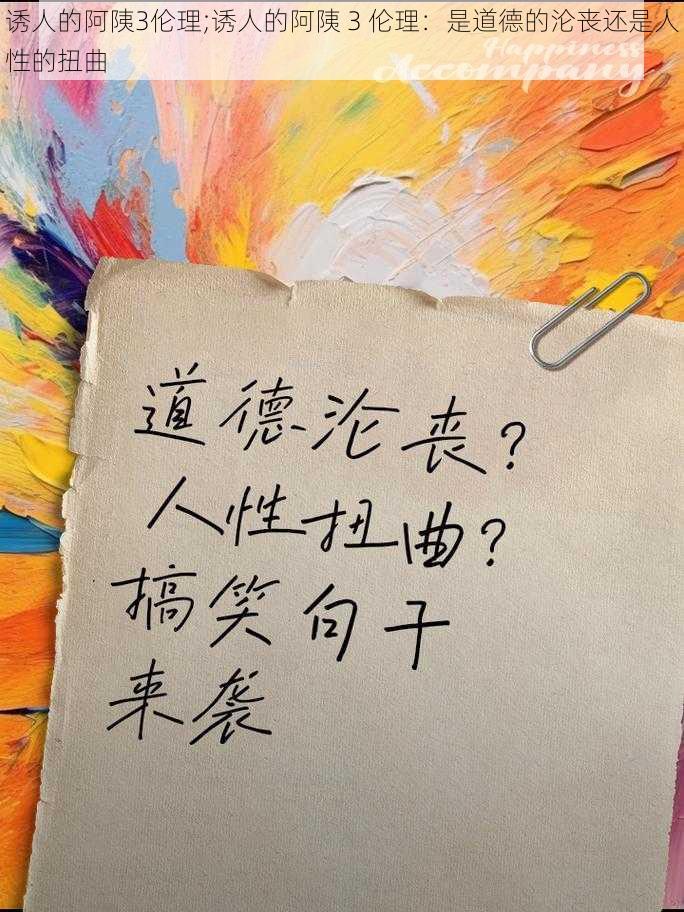 诱人的阿姨3伦理;诱人的阿姨 3 伦理：是道德的沦丧还是人
性的扭曲
Happiness
Accompany
道德沦丧？
人性扭曲？
搞笑句子
来袭